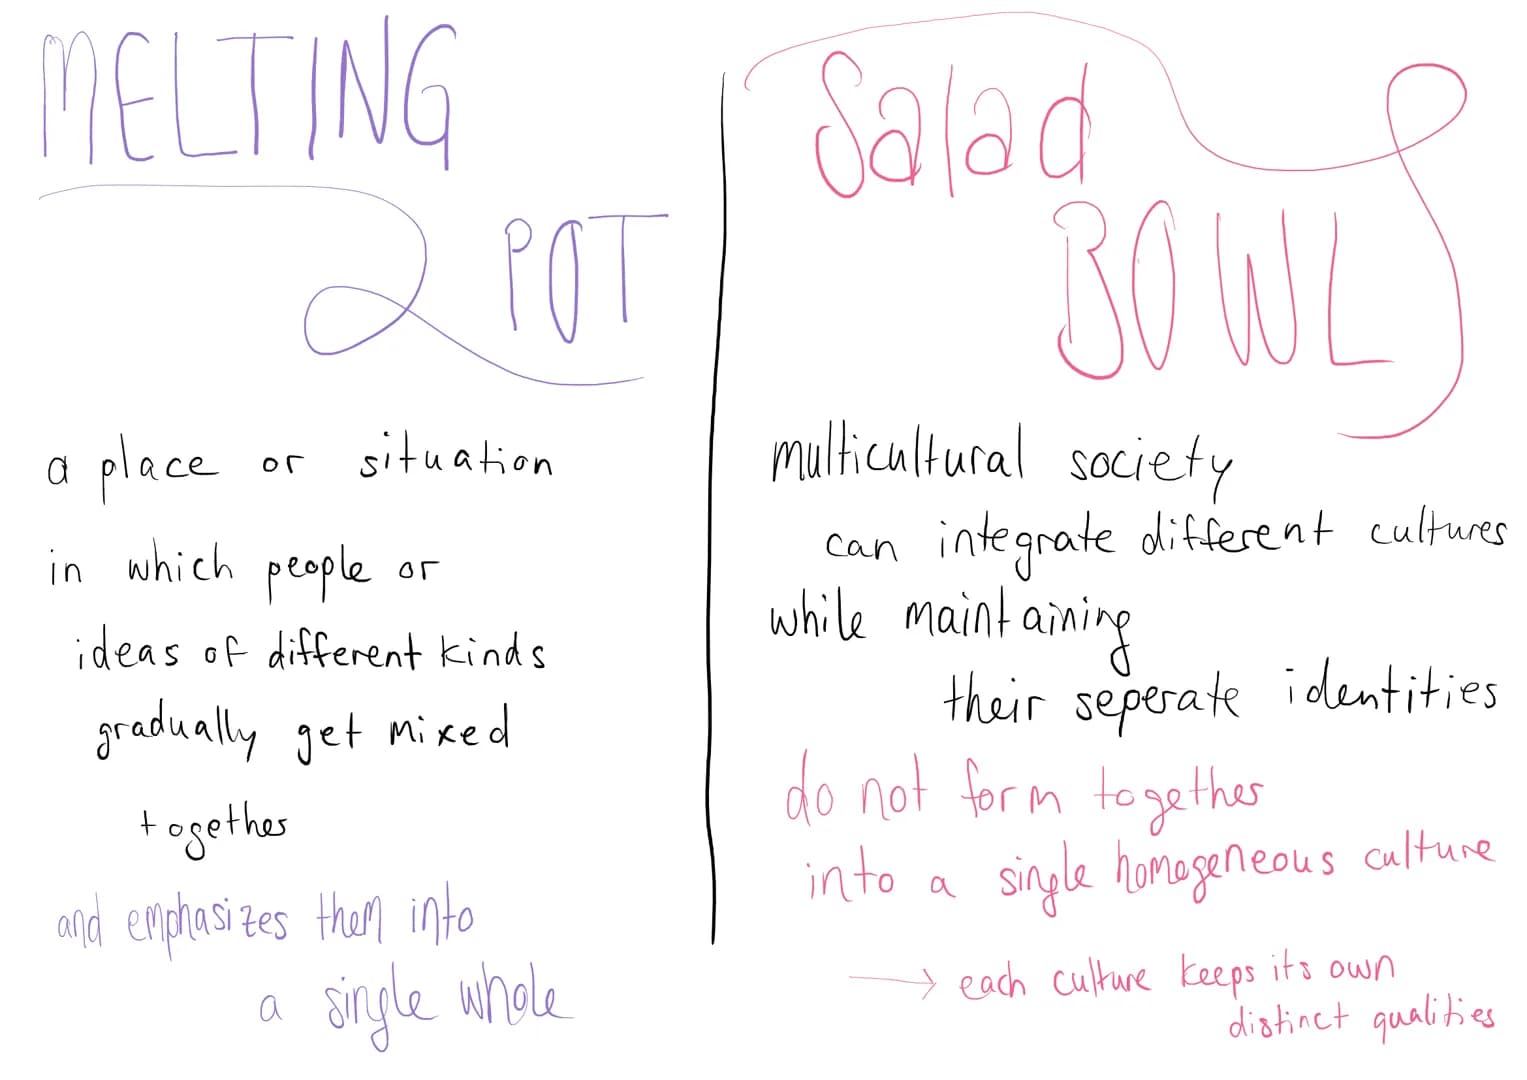 MELTING
POT
a place or situation
in which people or
ideas of different kinds
gradually get mixed
together
and emphasizes them into
a single whole
Salad
BOWL
multicultural society
can integrate different cultures
while maintaining
their seperate identities
do not form together
into a single homogeneous culture
→ each culture keeps its own
distinct qualities